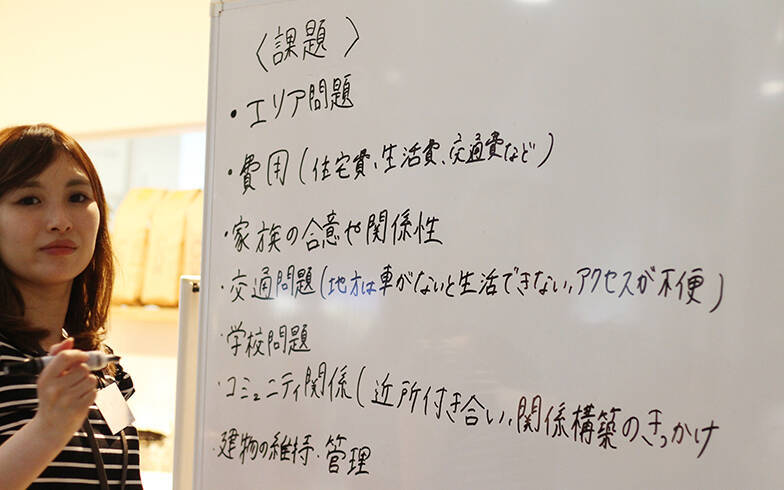 〈課題〉
・エリア問題
・費用(住宅費、生活費、交通費など)
・家族の合意や関係性
・交通問題(地方は車がないと生活できない,アクセスが不便)
・学校問題
・コミュニティ関係(近所付き合い,関係構築のきっかけ
・建物の維持・管理